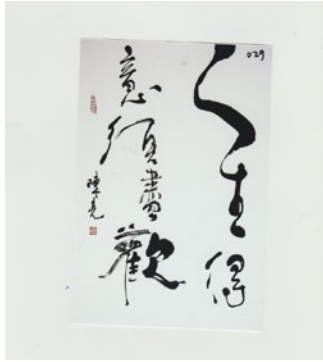 029
人生得
意须盡歡
陳亮